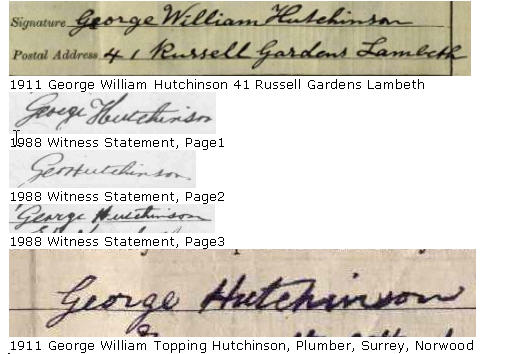 Signature George William Hutchinson
Postal Address 41 Russell Gardens Lambeth
1911 George William Hutchinson 41 Russell Gardens Lambeth
George Hutchinson
1988 Witness Statement, Page1
Geo Hutchinson
1988 Witness Statement, Page2
George Hutchinson
1988 Witness Statement, Page3
George Hutchinson
1911 George William Topping Hutchinson, Plumber, Surrey, Norwood